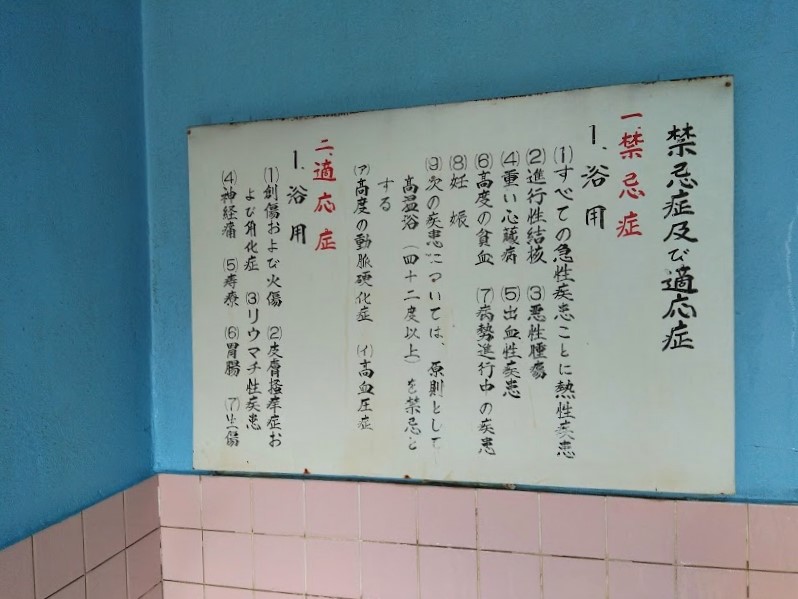 禁忌症及び適応症
一、禁忌症
1、浴用
(1)すべての急性疾患ことに熱性疾患
(2)進行性結核 (3)悪性腫瘍
(4)重い心臓病 (5)出血性疾患
(6)高度の貧血 (7)病勢進行中の疾患
(8)妊娠
(9)次の疾患については、原則として
高温浴(四十二度以上)を禁忌と
する
(ア)高度の動脈硬化症 (イ)高血圧症
二、適応症
1、浴用
(1)創傷および火傷 (2)皮膚掻痒症お
よび角化症 (3)リウマチ性疾患
(4)神経痛 (5)痔療 (6)胃腸 (7)外傷